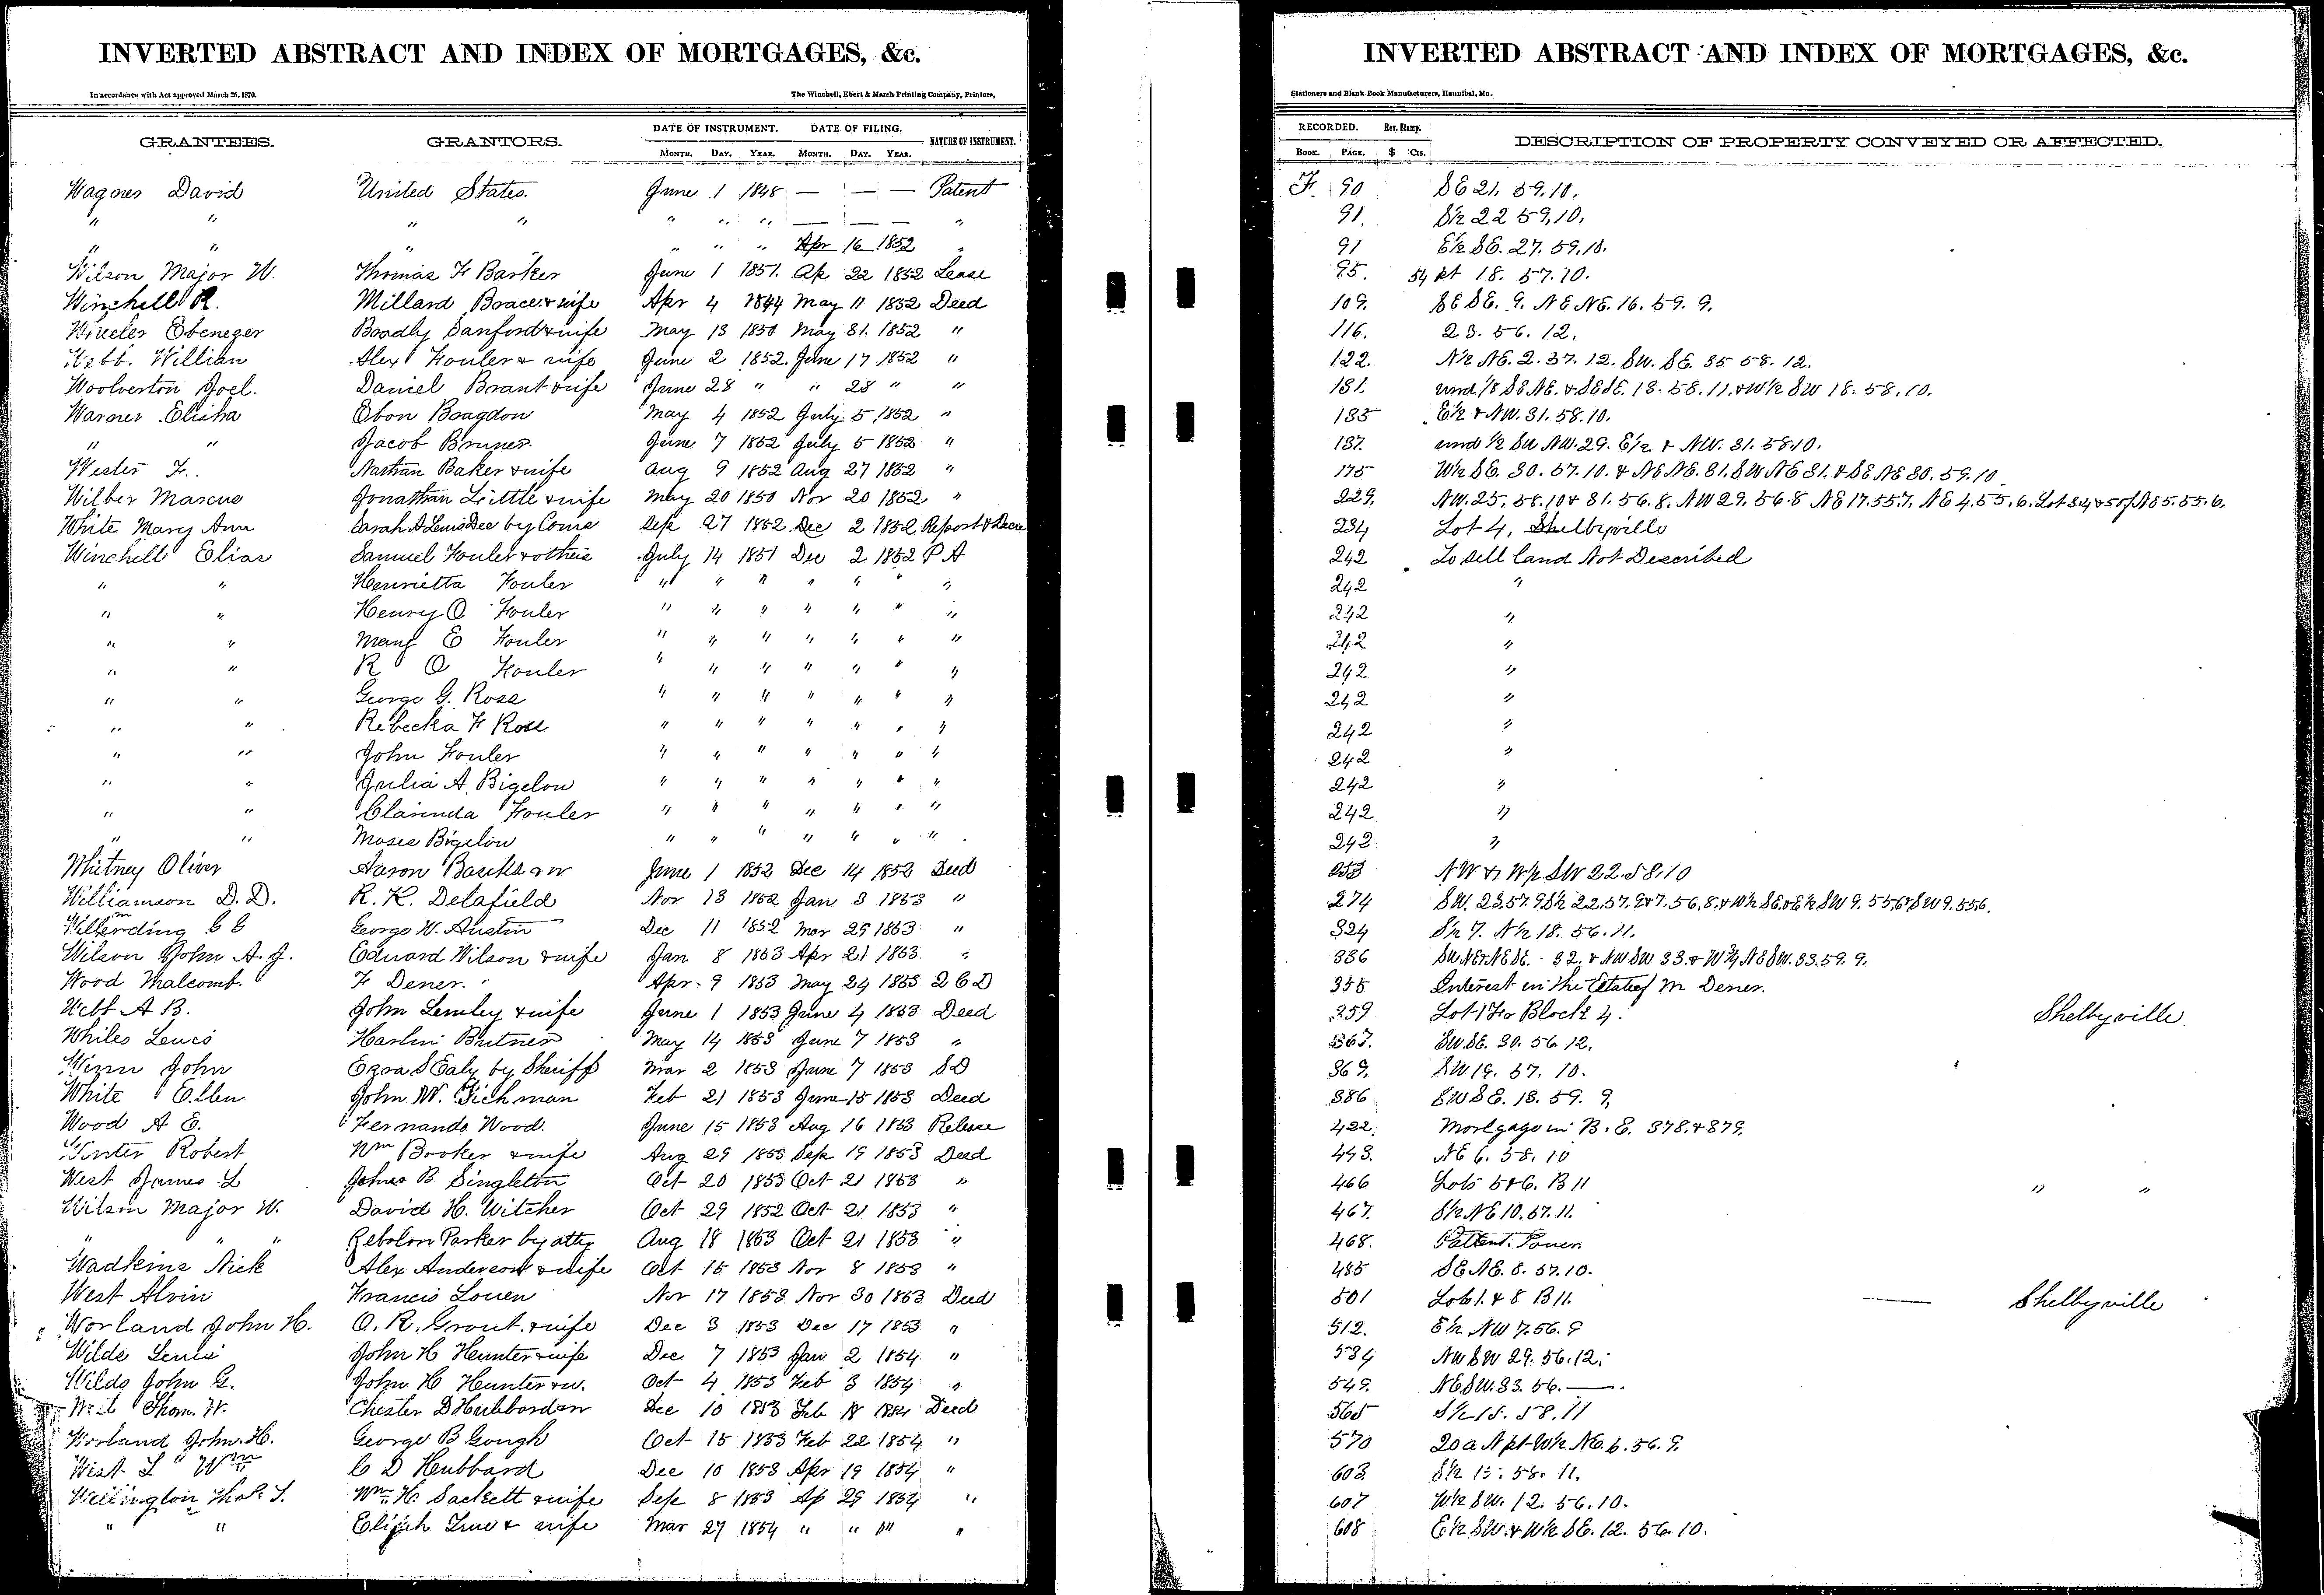 INVERTED ABSTRACT AND INDEX OF MORTGAGES, &c.
In accordance with Act approved March 25, 1870. The Winchell, Ebert & Marsh Printing Company, Printers,
GRANTEES. GRANTORS. DATE OF INSTRUMENT. DATE OF FILING. NATURE OF INSTRUMENT.
MONTH. DAY. YEAR. MONTH. DAY. YEAR.
Wagner David United States. June 1 1848 — — — Patent
" " " " " " " — — — "
" " " " " " Apr 16 1852 "
Wilson Major W. Thomas F Barker June 1 1851. Ap 22 1852 Lease
Winchell R. Millard Brace & wife Apr 4 1844 May 11 1852 Deed
Wheeler Ebenezer Bradly Sanford & wife May 13 1850 May 31. 1852 "
Webb. William Alex Fouler & wife June 2 1852. June 17 1852 "
Woolverton Joel. Daniel Brant & wife June 28 " " 28 " "
Warner Elisha Ebon Bragdon May 4 1852 July 5 1852 "
" " Jacob Bruner June 7 1852 July 5 1852 "
Wester F. Nathan Baker & wife Aug 9 1852 Aug 27 1852 "
Wilber Marcus Jonathan Little & wife May 20 1850 Nov 20 1852 "
White Mary Ann Sarah A Lewis Dec by Coms Sep 27 1852 Dec 2 1852 Report & Decre
Winchell Elias Samuel Fouler & others July 14 1851 Dec 2 1852 P. A
" " Henrietta Fouler " " " " " " "
" " Henry O Fouler " " " " " " "
" " Mary E Fouler " " " " " " "
" " R O Fouler " " " " " " "
" " George G. Ross " " " " " " "
" " Rebecka F Ross " " " " " " "
" " John Fouler " " " " " " "
" " Julia A. Bigelow " " " " " " "
" " Clarinda Fouler " " " " " " "
" " Moses Bigelow " " " " " " "
Whitney Oliver Aaron June 1 1852 Dec 14 1852 Deed
Williamson D. D. R. K. Delafield Nov 13 1852 Jan 3 1853 "
George W. Austin Dec 11 1852 Mar 29 1853 "
Wilson John A. J. Edward Wilson & wife Jan 8 1853 Apr 21 1853 "
Wood Malcomb. F Dener. Apr 9 1853 May 24 1853
Webb A B. John Lemley & wife June 1 1853 June 4 1853 Deed
Whiles Lewis Harlin Butner May 14 1853 June 7 1853 "
Winn John Ezra S Ealy by Sheriff Mar 2 1853 June 7 1853 SD
White Ellen John W. Feb 21 1853 June 15 1853 Deed
Wood A E. Fernando Wood. June 15 1853 Aug 16 1853 Release
Winter Robert Wm Booker & wife Aug 29 1853 Sep 19 1853 Deed
West James L James B Singleton Oct 20 1853 Oct 21 1853 "
Wilson Major W. David H. Witcher Oct 29 1852 Oct 21 1853 "
" " " Parker by atty Aug 18 1853 Oct 21 1853 "
Wadkins Nick Alex Anderson & wife Oct 15 1853 Nov 8 1853 "
West Alvin Francis Louen Nov 17 1853 Nov 30 1853 Deed
Worland John H. O. R. Grout & wife Dec 3 1853 Dec 17 1853 "
Wilds Lewis John H Hunter & wife Dec 7 1853 Jan 2 1854 "
Wilds John G. John H Hunter & w. Oct 4 1853 Feb 3 1854 "
Thom. W. Chester D Dec 10 1853 Feb 18 1854 Deed
Worland John. H. George B Gough Oct 15 1853 Feb 22 1854 "
West L Wm C D Hubbard Dec 10 1853 Apr 19 1854 "
Wellington Thos. S. Wm H. Sackett & wife Sep 8 1853 Ap 29 1854 "
" " Elijah True & wife Mar 27 1854 " " " "
INVERTED ABSTRACT AND INDEX OF MORTGAGES, &c.
Stationers and Blank Book Manufacturers, Hannibal, Mo.
RECORDED. Rev. Stamp. DESCRIPTION OF PROPERTY CONVEYED OR AFFECTED.
BOOK. PAGE. $ Cts.
F. 90 SE 21. 59. 10.
91. S½ 22 59. 10.
91 E½ SE. 27. 59. 10.
95. pt 18. 57. 10.
109. SE SE. 9. NE NE. 16. 59. 9.
116. 23. 56. 12.
122. N½ NE. 2. 57. 12. SW. SE. 35 58. 12.
131. und ⅛ SE NE. & SE SE. 13. 58. 11. & W½ SW 18. 58. 10.
135 E½ & NW. 31. 58. 10.
137. und ½ SW NW. 29. E½ & NW. 31. 58. 10.
175 W½ SE. 30. 57. 10. & NE NE. 31. SW NE 31. & SE NE 30. 59. 10
229. NW. 25. 58. 10 & 31. 56. 8. NW 29. 56. 8 NE 17. 55. 7. NE 4. 55. 6. Lot 3 4 & 5 of NE 5. 55. 6.
234 Lot 4, Shelbyville
242 To sell land Not Described
242 "
242 "
242 "
242 "
242 "
242 "
242 "
242 "
242 "
242 "
253 NW & W½ SW 22. 58. 10
274 SW. 23. 57. 9 S½ 22. 57. 9 & 7. 56. 8. & W½ SE. & E½ SW 9. 55 6 & SW 9. 55 6.
324 S½ 7. N½ 18. 56. 11.
336 SW NE & NE SE. 32. & NW SW 33. & W¾ NE SW. 33. 59. 9.
355 Interest in the Estate of M Dener.
359 Lot 1 Fr Block 4. Shelbyville.
367. SW. SE. 30. 56. 12.
369. SW 19. 57. 10.
386 SW SE. 18. 59. 9.
422. Mortgage in B. E. 378. & 379.
443. NE 6. 58. 10
466 Lots 5 & 6. B 11 " "
467. S½ NE 10. 57. 11.
468. Power
485 SE NE. 8. 57. 10.
501 Lots 1. & 8 B 11. — Shelbyville
512. E½ NW 7. 56. 9
534 NW SW 29. 56. 12.
549. NE SW. 33. 56. —.
565 S½ 15. 58. 11
570 20 a N pt W½ NE. 6. 56. 9.
603. S½ 15. 58. 11.
607 W½ SW. 12. 56. 10.
608 E½ SW. & W½ SE. 12. 56. 10.